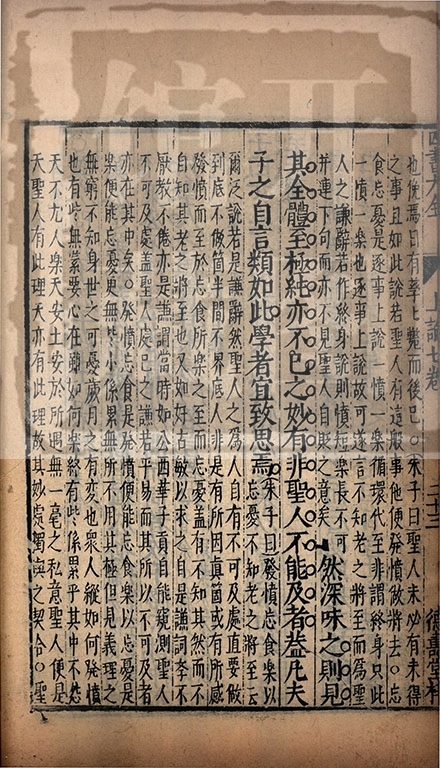 四書大全 上論七卷 二十三 德壽堂梓
也俛焉日有孳孳斃而後已○朱子曰聖人未必有未得
之事且如此說若聖人有這般事他便發憤做將去○忘
食忘憂是逐事上說一憤一樂循環代至非謂終身只此
一憤一樂也逐事上說故可遂言不知老之將至而爲聖
人之謙辭若作終身說則憤短樂長不可
并連下句而亦不見聖人自貶之意矣
然深味之則見
其全體至極純亦不已之妙有非聖人不能及者蓋凡夫
子之自言類如此學者宜致思焉
朱子曰發憤忘食樂以
忘憂不知老之將至云
爾泛說若是謙辭然聖人之爲人自有不可及處直要做
到底不做箇半間不界底人非是有所因真箇或有所感
發憤而至於忘食所樂之至而忘憂蓋有不知其然而不
自知其老之將至也又如好古敏以求之自是謙詞學不
厭教不倦亦是謙謂當時如公西華子貢自能窺測聖人
不可及處蓋聖人處己之謙若平易而其所以不可及者
亦在其中矣○發憤忘食是發憤便能忘食樂以忘憂是
樂便能忘憂更無些小係累無所不用其極但見義理之
無窮不知身世之可憂歲月之有變也衆人縱如何發憤
也有些無緊要心在雖如何樂終有些係累乎其中不怨
天不尤人樂天安土安於所遇無一毫之私意聖人便是
天聖人有此理天亦有此理故其妙處獨與之契合○聖